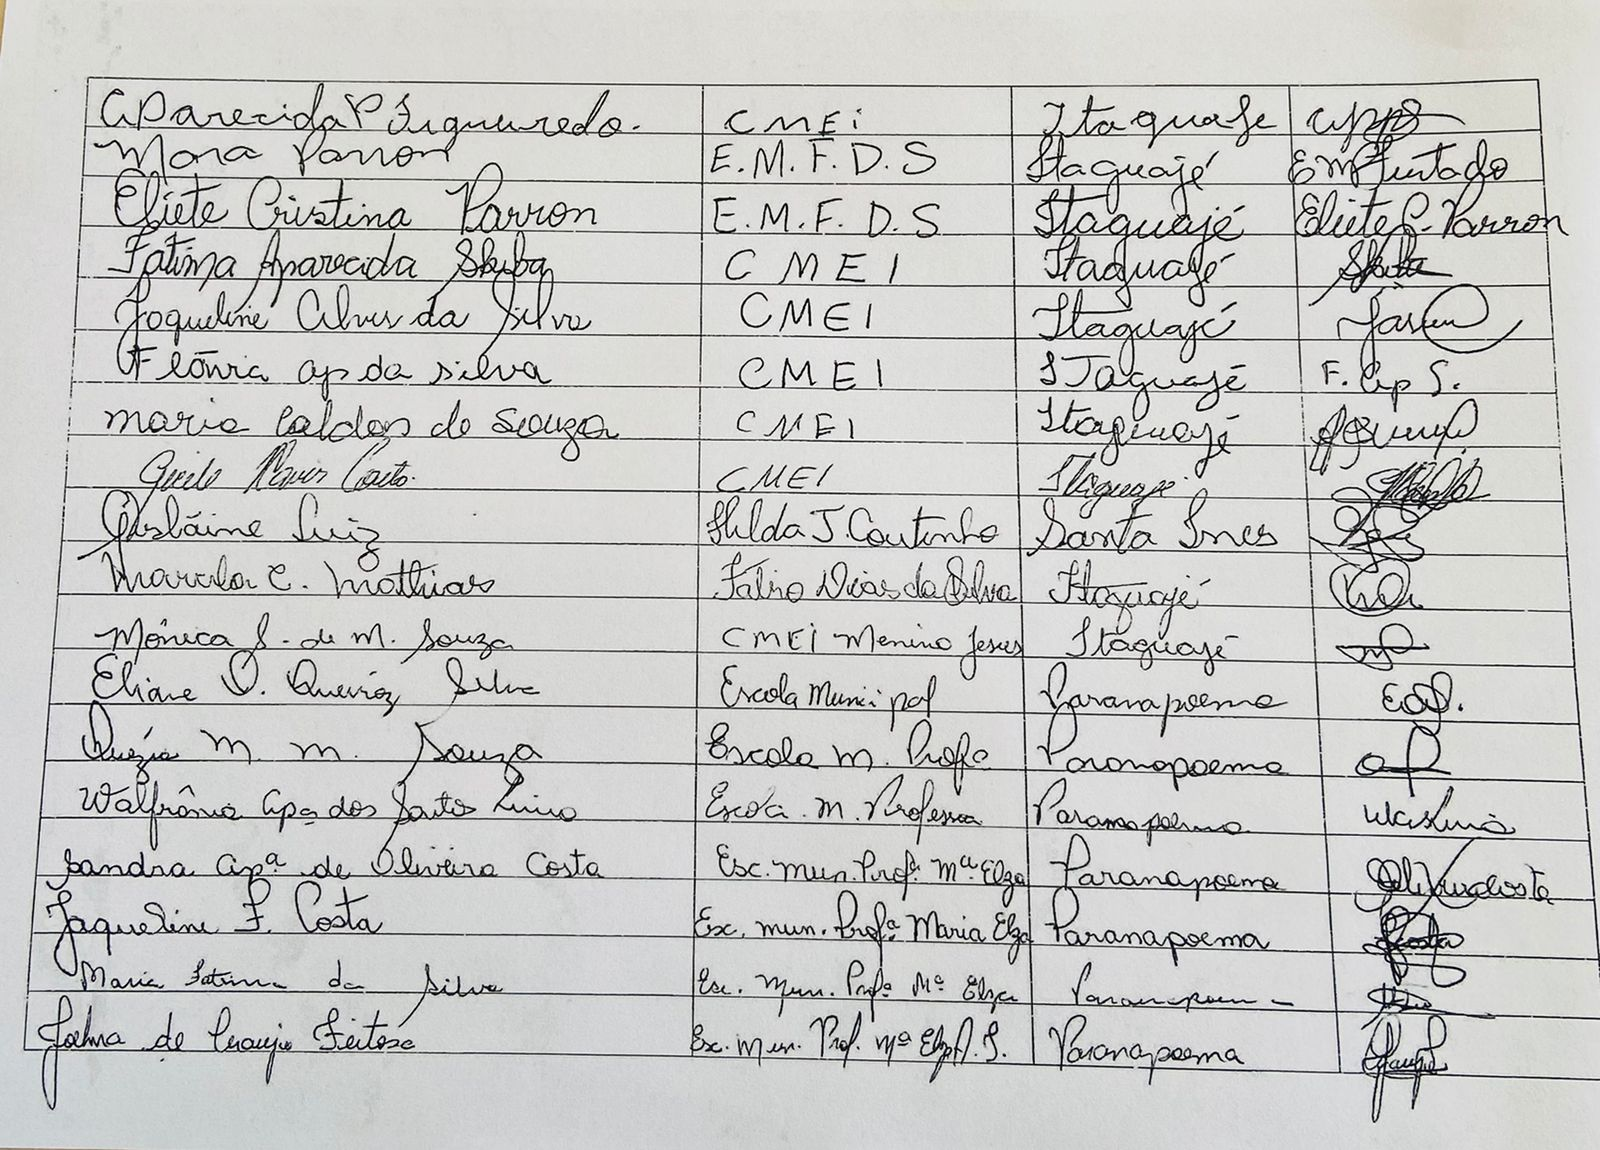 Aparecida P Figueiredo. CMEi Itaguaje
Mara Parron E.M.F.D.S Itaguajé EMFurtado
Eliete Cristina Parron E.M.F.D.S Itaguajé Eliete C. Parron
Fatima Aparecida Skiba CMEI Itaguajé Skiba
Jaqueline Alves da Silva CMEI Itaguajé
Flávia ap da silva CMEI ITaguajé F. Ap S.
maria Caldas de Souza CMEI Itaguajé
CMEI Itaguajé
Gislaine Luiz Hilda J. Coutinho Santa Ines
Marcela C. Mathias Fabio Dias da Silva Itaguajé
Mônica S. de M. Souza CMEi Menino Jesus Itaguajé
Eliane O. Queiróz Silva Escola Municipal Paranapoema EOS.
Quézia M. M. Souza Escola M. Profa Paranapoema
Walfrânia Apa dos Santos Escola. M. Professora Paranapoema
Sandra Apª de Oliveira Costa Esc. Mun. Profª Mª Elza Paranapoema
Jaqueline F. Costa Esc. mun. Profª Maria Elza Paranapoema Costa
Maria Fatima da Silva Esc. Mun. Profª Mª Elza
de Araujo Feitosa Esc. Mun. Prof. Mª Elza A. S. Paranapoema